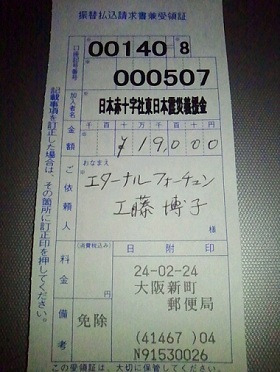 振替払込請求書兼受領証
口座記号番号
00140 8
000507
加入者名
日本赤十字社東日本震災義援金
金額
千 百 十 万 千 百 十 円
¥19000
ご依頼人
おなまえ
エターナルフォーチュン
工藤 博子
(消費税込み)
料金
免除
備考
日附印
24-02-24
大阪新町
郵便局
(41467)04
N91530026
この受領証は、大切に保管してください。
記載事項を訂正した場合は、その箇所に訂正印を押してください。